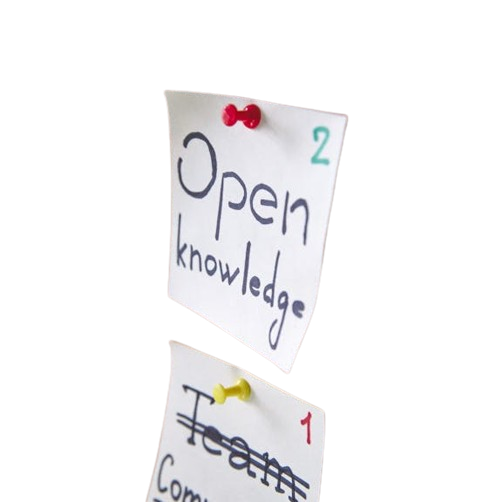 2
Open
knowledge
1
Team